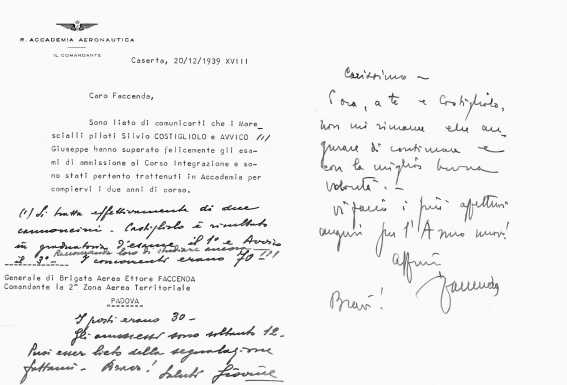 R. ACCADEMIA AERONAUTICA
IL COMANDANTE
Caserta, 20/12/1939 XVIII
Caro Faccenda,
Sono lieto di comunicarti che i Mare_
scialli piloti Silvio COSTIGLIOLO e AVVICO (1)
Giuseppe hanno superato felicemente gli esa_
mi di ammissione al Corso Integrazione e so_
no stati pertanto trattenuti in Accademia per
compiervi i due anni di corso.
(1) Si tratta effettivamente di due
cannoncini. Costigliolo è risultato
in graduatoria d'esame il 1° e Avvico
Raccomanda loro di studiare ancora
il 3° - I concorrenti erano 70 -
Generale di Brigata Aerea Ettore FACCENDA
Comandante la 2ª Zona Aerea Territoriale
PADOVA
I posti erano 30 -
Gli ammessi sono soltanto 12 -
Puoi esser lieto della segnalazione
fattami - Bravo! Saluti
Carissimo -
Ora, a te e Costigliolo,
non mi rimane che au_
gurare di continuare e
con la miglior buona
volontà. -
Vi faccio i più affettuosi
auguri per l'Anno nuovo!
Aff.mo
Faccenda
Bravi!